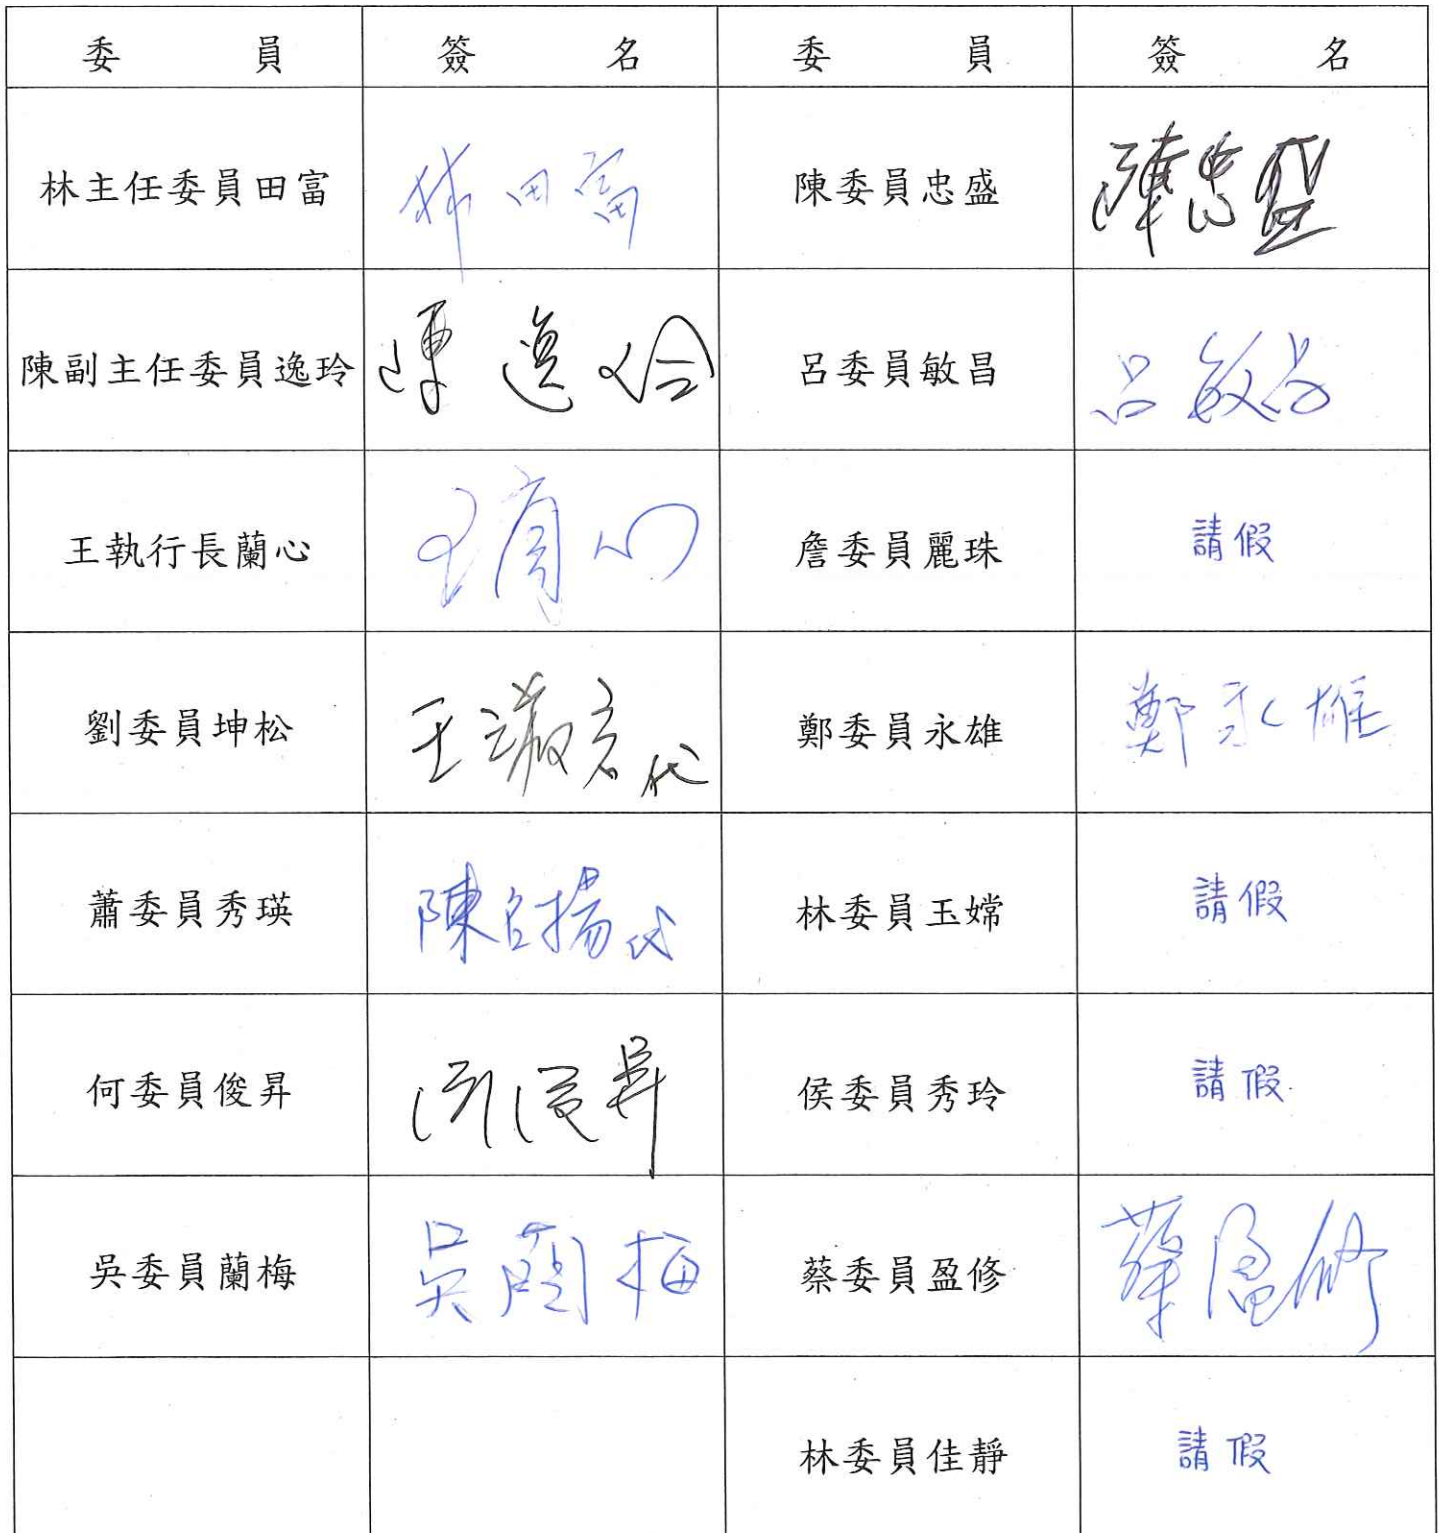 委員 簽名 委員 簽名
林主任委員田富 林田富 陳委員忠盛 陳忠盛
陳副主任委員逸玲 陳逸玲 呂委員敏昌 呂敏昌
王執行長蘭心 王蘭心 詹委員麗珠 請假
劉委員坤松 王 代 鄭委員永雄 鄭永雄
蕭委員秀瑛 陳 揚代 林委員玉嫦 請假
何委員俊昇 何俊昇 侯委員秀玲 請假
吳委員蘭梅 吳蘭梅 蔡委員盈修 蔡盈修
林委員佳靜 請假